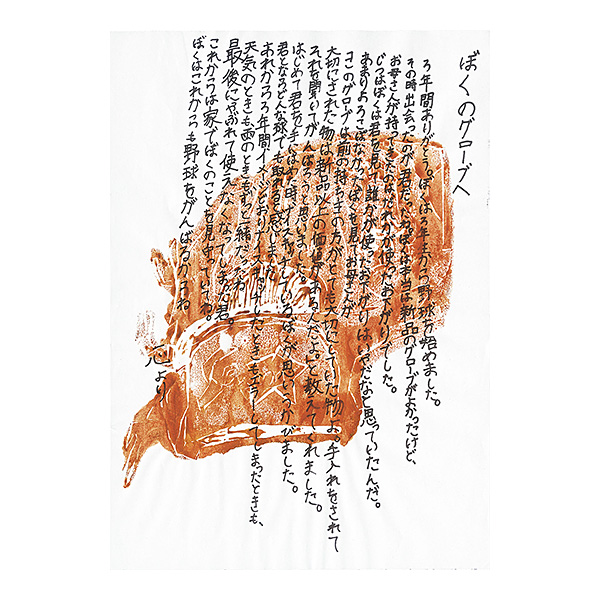 ぼくのグローブへ
3年間ありがとう。ぼくは3年生から野球を始めました。
その時出会ったのが君だったね。ぼくは本当は新品のグローブがよかったけど、
お母さんが持ってきたのはだれかが使ったお下がりでした。
じつはぼくは君を見て誰かが使ったお下がりはいやだなと思っていたんだ。
あまりよろこばなかったぼくを見てお母さんが
「このグローブは前の持ち主の方がとても大切にしていた物だよ。手入れをされて
大切にされた物は新品以上の価値があるんだよ。」と教えてくれました。
それを聞いてがんばろうと思いました。
はじめて君を手にはめた時ナイスキャッチしているぼくが思いうかびました。
君とならどんな球でも取れると感じました。
あれから3年間イメージどおりナイスキャッチしたときもエラーしてしまったときも、
天気のときも雨のときもずっと一緒だったね。
最後にやぶれて使えなくなってしまった君。
これからは家でぼくのことを見守っていてね。
ぼくはこれからも野球をがんばるからね
心より